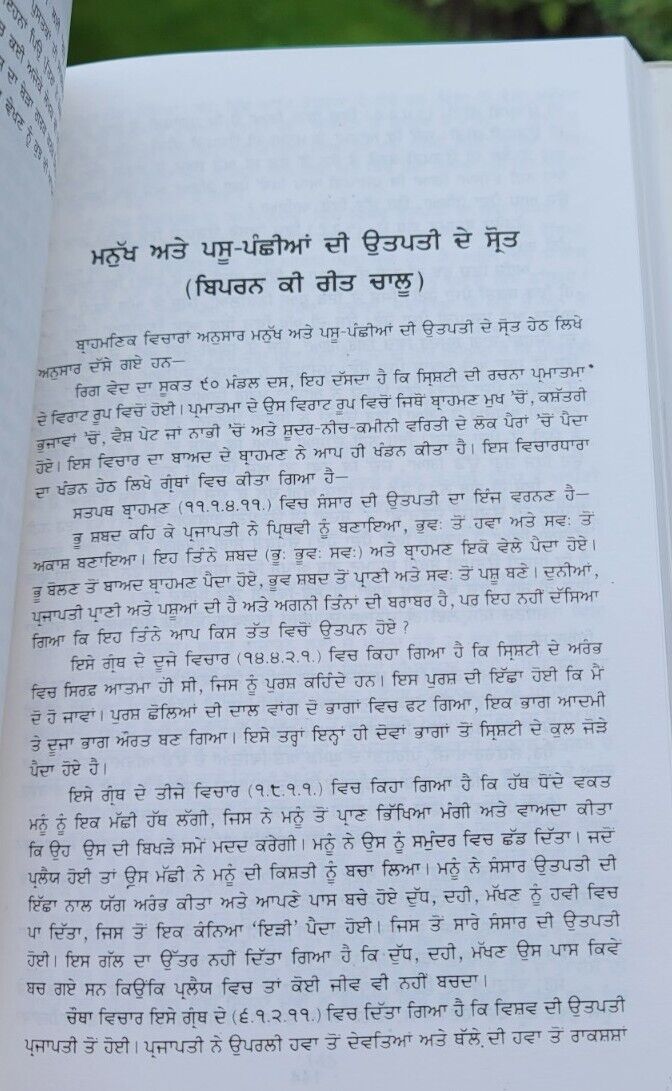 ਮਨੁੱਖ ਅਤੇ ਪਸੂ-ਪੰਛੀਆਂ ਦੀ ਉਤਪਤੀ ਦੇ ਸ੍ਰੋਤ
(ਬਿਪਰਨ ਕੀ ਰੀਤ ਚਾਲੂ)
ਬ੍ਰਾਹਮਣਿਕ ਵਿਚਾਰਾਂ ਅਨੁਸਾਰ ਮਨੁੱਖ ਅਤੇ ਪਸੂ-ਪੰਛੀਆਂ ਦੀ ਉਤਪਤੀ ਦੇ ਸ੍ਰੋਤ ਹੇਠ ਲਿਖੇ
ਅਨੁਸਾਰ ਦੱਸੇ ਗਏ ਹਨ—
ਰਿਗ ਵੇਦ ਦਾ ਸੂਕਤ ੯੦ ਮੰਡਲ ਦਸ, ਇਹ ਦੱਸਦਾ ਹੈ ਕਿ ਸ੍ਰਿਸ਼ਟੀ ਦੀ ਰਚਨਾ ਪ੍ਰਮਾਤਮਾ
ਦੇ ਵਿਰਾਟ ਰੂਪ ਵਿਚੋਂ ਹੋਈ। ਪ੍ਰਮਾਤਮਾ ਦੇ ਉਸ ਵਿਰਾਟ ਰੂਪ ਵਿਚੋਂ ਜਿਥੋਂ ਬ੍ਰਾਹਮਣ ਮੁਖ 'ਚੋਂ, ਕਸ਼ੱਤਰੀ
ਭੁਜਾਵਾਂ 'ਚੋਂ, ਵੈਸ਼ ਪੇਟ ਜਾਂ ਨਾਭੀ 'ਚੋਂ ਅਤੇ ਸ਼ੂਦਰ-ਨੀਚ-ਕਮੀਨੀ ਵਰਿਤੀ ਦੇ ਲੋਕ ਪੈਰਾਂ 'ਚੋਂ ਪੈਦਾ
ਹੋਏ। ਇਸ ਵਿਚਾਰ ਦਾ ਬਾਅਦ ਦੇ ਬ੍ਰਾਹਮਣ ਨੇ ਆਪ ਹੀ ਖੰਡਨ ਕੀਤਾ ਹੈ। ਇਸ ਵਿਚਾਰਧਾਰਾ
ਦਾ ਖੰਡਨ ਹੇਠ ਲਿਖੇ ਗ੍ਰੰਥਾਂ ਵਿਚ ਕੀਤਾ ਗਿਆ ਹੈ—
ਸਤਪਥ ਬ੍ਰਾਹਮਣ (੧੧.੧.੪.੧੧.) ਵਿਚ ਸੰਸਾਰ ਦੀ ਉਤਪਤੀ ਦਾ ਇੰਜ ਵਰਨਣ ਹੈ—
ਭੂ ਸ਼ਬਦ ਕਹਿ ਕੇ ਪ੍ਰਜਾਪਤੀ ਨੇ ਪ੍ਰਿਥਵੀ ਨੂੰ ਬਣਾਇਆ, ਭੁਵਃ ਤੋਂ ਹਵਾ ਅਤੇ ਸਵਃ ਤੋਂ
ਅਕਾਸ਼ ਬਣਾਇਆ। ਇਹ ਤਿੰਨੇ ਸ਼ਬਦ (ਭੂਃ ਭੂਵਃ ਸਵਃ) ਅਤੇ ਬ੍ਰਾਹਮਣ ਇਕੋ ਵੇਲੇ ਪੈਦਾ ਹੋਏ।
ਭੂ ਬੋਲਣ ਤੋਂ ਬਾਅਦ ਬ੍ਰਾਹਮਣ ਪੈਦਾ ਹੋਏ, ਭੂਵ ਸ਼ਬਦ ਤੋਂ ਪ੍ਰਾਣੀ ਅਤੇ ਸਵਃ ਤੋਂ ਪਸ਼ੂ ਬਣੇ। ਦੁਨੀਆਂ,
ਪ੍ਰਜਾਪਤੀ ਪ੍ਰਾਣੀ ਅਤੇ ਪਸ਼ੂਆਂ ਦੀ ਹੈ ਅਤੇ ਅਗਨੀ ਤਿੰਨਾਂ ਦੀ ਬਰਾਬਰ ਹੈ, ਪਰ ਇਹ ਨਹੀਂ ਦੱਸਿਆ
ਗਿਆ ਕਿ ਇਹ ਤਿੰਨੇ ਆਪ ਕਿਸ ਤੱਤ ਵਿਚੋਂ ਉਤਪਨ ਹੋਏ ?
ਇਸੇ ਗ੍ਰੰਥ ਦੇ ਦੂਜੇ ਵਿਚਾਰ (੧੪.੪.੨.੧.) ਵਿਚ ਕਿਹਾ ਗਿਆ ਹੈ ਕਿ ਸ੍ਰਿਸ਼ਟੀ ਦੇ ਅਰੰਭ
ਵਿਚ ਸਿਰਫ਼ ਆਤਮਾ ਹੀ ਸੀ, ਜਿਸ ਨੂੰ ਪੁਰਸ਼ ਕਹਿੰਦੇ ਹਨ। ਇਸ ਪੁਰਸ਼ ਦੀ ਇੱਛਾ ਹੋਈ ਕਿ ਮੈਂ
ਦੋ ਹੋ ਜਾਵਾਂ। ਪੁਰਸ਼ ਛੋਲਿਆਂ ਦੀ ਦਾਲ ਵਾਂਗ ਦੋ ਭਾਗਾਂ ਵਿਚ ਫਟ ਗਿਆ, ਇਕ ਭਾਗ ਆਦਮੀ
ਤੇ ਦੂਜਾ ਭਾਗ ਔਰਤ ਬਣ ਗਿਆ। ਇਸੇ ਤਰ੍ਹਾਂ ਇਨ੍ਹਾਂ ਹੀ ਦੋਵਾਂ ਭਾਗਾਂ ਤੋਂ ਸ੍ਰਿਸ਼ਟੀ ਦੇ ਕੁਲ ਜੋੜੇ
ਪੈਦਾ ਹੋਏ ਹੈ।
ਇਸੇ ਗ੍ਰੰਥ ਦੇ ਤੀਜੇ ਵਿਚਾਰ (੧.੮.੧.੧.) ਵਿਚ ਕਿਹਾ ਗਿਆ ਹੈ ਕਿ ਹੱਥ ਧੋਂਦੇ ਵਕਤ
ਮਨੂੰ ਨੂੰ ਇਕ ਮੱਛੀ ਹੱਥ ਲੱਗੀ, ਜਿਸ ਨੇ ਮਨੂੰ ਤੋਂ ਪ੍ਰਾਣ ਭਿੱਖਿਆ ਮੰਗੀ ਅਤੇ ਵਾਅਦਾ ਕੀਤਾ
ਕਿ ਉਹ ਉਸ ਦੀ ਬਿਖੜੇ ਸਮੇਂ ਮਦਦ ਕਰੇਗੀ। ਮਨੂੰ ਨੇ ਉਸ ਨੂੰ ਸਮੁੰਦਰ ਵਿਚ ਛੱਡ ਦਿੱਤਾ। ਜਦੋਂ
ਪ੍ਰਲੈਯ ਹੋਈ ਤਾਂ ਉਸ ਮੱਛੀ ਨੇ ਮਨੂੰ ਦੀ ਕਿਸ਼ਤੀ ਨੂੰ ਬਚਾ ਲਿਆ। ਮਨੂੰ ਨੇ ਸੰਸਾਰ ਉਤਪਤੀ ਦੀ
ਇੱਛਾ ਨਾਲ ਯੱਗ ਅਰੰਭ ਕੀਤਾ ਅਤੇ ਆਪਣੇ ਪਾਸ ਬਚੇ ਹੋਏ ਦੁੱਧ, ਦਹੀ, ਮੱਖਣ ਨੂੰ ਹਵੀ ਵਿਚ
ਪਾ ਦਿੱਤਾ, ਜਿਸ ਤੋਂ ਇਕ ਕੰਨਿਆ 'ਇੜੀ' ਪੈਦਾ ਹੋਈ। ਜਿਸ ਤੋਂ ਸਾਰੇ ਸੰਸਾਰ ਦੀ ਉਤਪਤੀ
ਹੋਈ। ਇਸ ਗੱਲ ਦਾ ਉੱਤਰ ਨਹੀਂ ਦਿੱਤਾ ਗਿਆ ਹੈ ਕਿ ਦੁੱਧ, ਦਹੀ, ਮੱਖਣ ਉਸ ਪਾਸ ਕਿਵੇਂ
ਬਚ ਗਏ ਸਨ ਕਿਉਂਕਿ ਪ੍ਰਲੈਯ ਵਿਚ ਤਾਂ ਕੋਈ ਜੀਵ ਵੀ ਨਹੀਂ ਬਚਦਾ।
ਚੌਥਾ ਵਿਚਾਰ ਇਸੇ ਗ੍ਰੰਥ ਦੇ (੬.੧.੨.੧੧.) ਵਿਚ ਦਿੱਤਾ ਗਿਆ ਹੈ ਕਿ ਵਿਸ਼ਵ ਦੀ ਉਤਪਤੀ
ਪ੍ਰਜਾਪਤੀ ਤੋਂ ਹੋਈ। ਪ੍ਰਜਾਪਤੀ ਨੇ ਉਪਰਲੀ ਹਵਾ ਤੋਂ ਦੇਵਤਿਆਂ ਅਤੇ ਥੱਲੇ ਦੀ ਹਵਾ ਤੋਂ ਰਾਕਸ਼ਸ਼ਾਂ